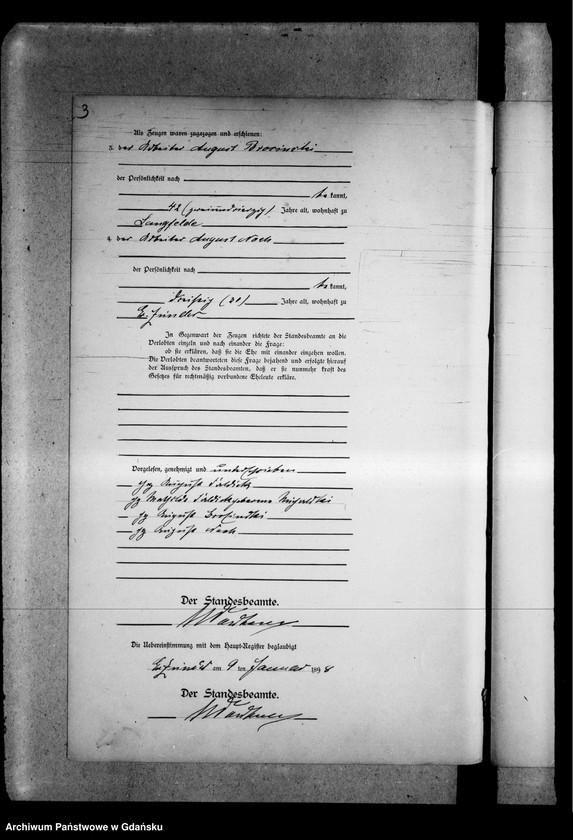 3
Als Zeugen waren zugezogen und erschienen:
3. der Arbeiter August
der Persönlichkeit nach
be kannt,
42 (zweiundvierzig) Jahre alt, wohnhaft zu
Langfelde
4. der Arbeiter August Noch
der Persönlichkeit nach
be kannt,
dreißig (30) Jahre alt, wohnhaft zu
Gr. Zünder
In Gegenwart der Zeugen richtete der Standesbeamte an die
Verlobten einzeln und nach einander die Frage:
ob sie erklären, daß sie die Ehe mit einander eingehen wollen.
Die Verlobten beantworteten diese Frage bejahend und erfolgte hierauf
der Ausspruch des Standesbeamten, daß er sie nunmehr kraft des
Gesetzes für rechtmäßig verbundene Eheleute erkläre.
Vorgelesen, genehmigt und unterschrieben
gez. August
gez. Mathilde geborene
gez. August
gez. August Noch
Der Standesbeamte.
Die Uebereinstimmung mit dem Haupt-Register beglaubigt
Gr. Zünder am 9 ten Januar 1898
Der Standesbeamte.
Archiwum Państwowe w Gdańsku